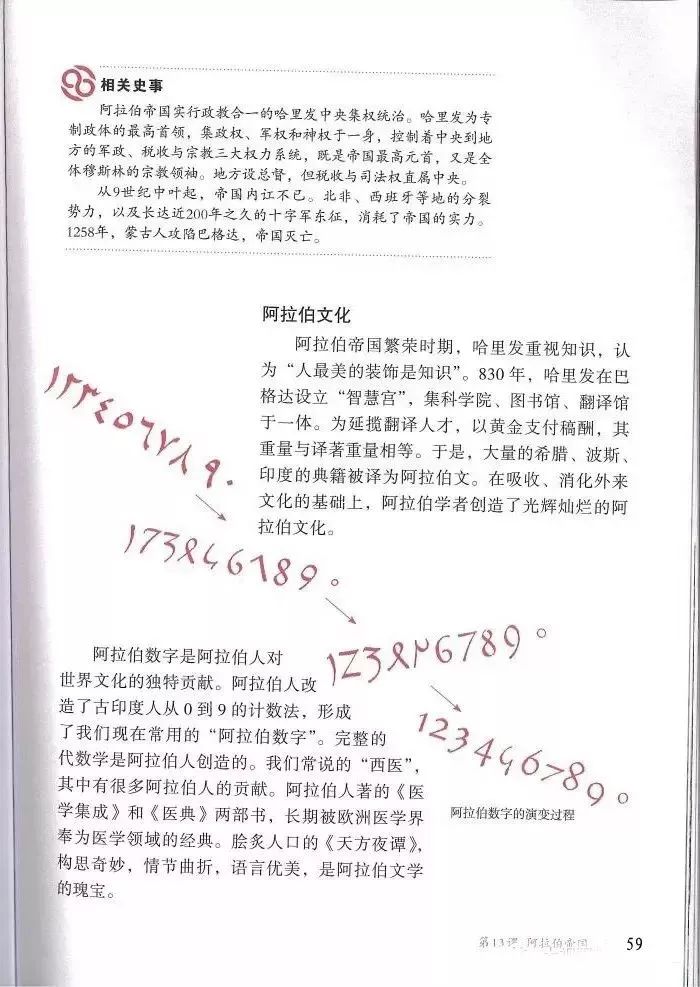 相关史事
阿拉伯帝国实行政教合一的哈里发中央集权统治。哈里发为专
制政体的最高首领，集政权、军权和神权于一身，控制着中央到地
方的军政、税收与宗教三大权力系统，既是帝国最高元首，又是全
体穆斯林的宗教领袖。地方设总督，但税收与司法权直属中央。
从9世纪中叶起，帝国内讧不已。北非、西班牙等地的分裂
势力，以及长达近200年之久的十字军东征，消耗了帝国的实力。
1258年，蒙古人攻陷巴格达，帝国灭亡。
阿拉伯文化
阿拉伯帝国繁荣时期，哈里发重视知识，认
为“人最美的装饰是知识”。830 年，哈里发在巴
格达设立“智慧宫”，集科学院、图书馆、翻译馆
于一体。为延揽翻译人才，以黄金支付稿酬，其
重量与译著重量相等。于是，大量的希腊、波斯、
印度的典籍被译为阿拉伯文。在吸收、消化外来
文化的基础上，阿拉伯学者创造了光辉灿烂的阿
拉伯文化。
阿拉伯数字是阿拉伯人对
世界文化的独特贡献。阿拉伯人改
造了古印度人从 0 到 9 的计数法，形成
了我们现在常用的“阿拉伯数字”。完整的
代数学是阿拉伯人创造的。我们常说的“西医”，
其中有很多阿拉伯人的贡献。阿拉伯人著的《医
学集成》和《医典》两部书，长期被欧洲医学界
奉为医学领域的经典。脍炙人口的《天方夜谭》，
构思奇妙，情节曲折，语言优美，是阿拉伯文学
的瑰宝。
阿拉伯数字的演变过程
第13课 阿拉伯帝国 59